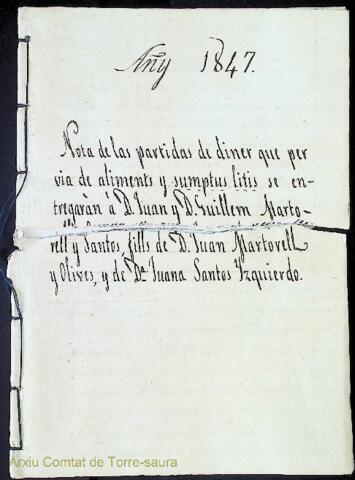 Añy 1847.
Nota de las partidas de diner que per
via de aliments y sumptus litis se en-
tregarán á D. Juan y D. Guillem Marto-
rell y Santos, fills de D. Juan Martorell
y Olives, y de Dª Juana Santos Yzquierdo.
Arxiu Comtat de Torre-saura